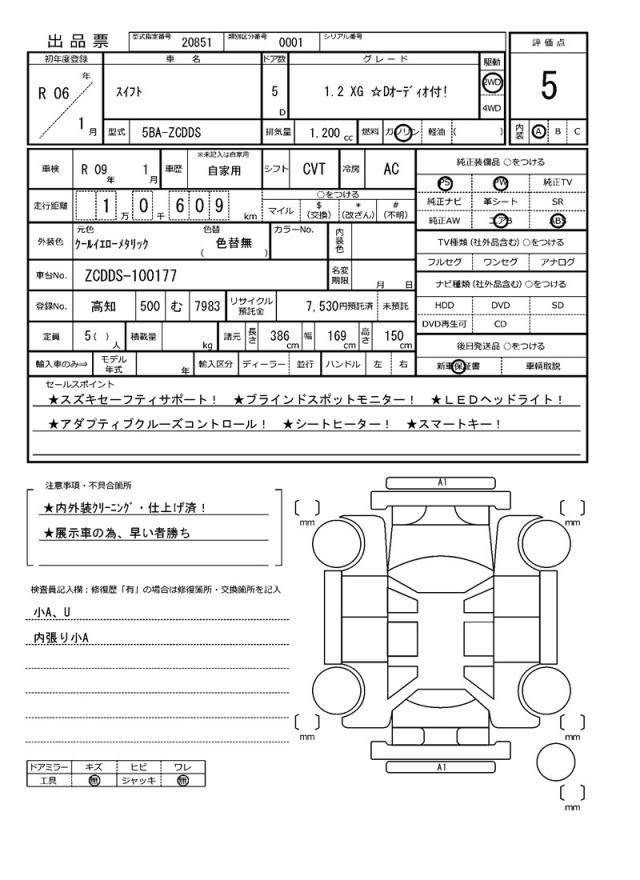 出品票 型式指定番号 20851 類別区分番号 0001 シリアル番号
評価点
5
内装 A B C
初年度登録 車名 ドア数 グレード 駆動
R 06 年 1 月 スイフト 5 D 1.2 XG ☆Dオーディオ付! 2WD 4WD
型式 5BA-ZCDDS 排気量 1.200 cc 燃料 ガソリン 軽油 ( )
車検 R 09 年 1 月 車歴 ※未記入は自家用 自家用 シフト CVT 冷房 AC
走行距離 1 万 0 千 6 0 9 km
○をつける
マイル $ (交換) * (改ざん) # (不明)
外装色 元色 クールイエローメタリック 色替 色替無 ( ) カラーNo. 内装色
車台No. ZCDDS-100177 名変期限 月 日
登録No. 高知 500 む 7983 リサイクル預託金 7,530円預託済 未預託
定員 5( ) 人 積載量 kg 諸元 長さ 386 cm 幅 169 cm 高さ 150 cm
輸入車のみ⇒ モデル年式 年 輸入区分 ディーラー 並行 ハンドル 左 右
純正装備品 ○をつける
PS PW 純正TV
純正ナビ 革シート SR
純正AW エアB ABS
TV種類 (社外品含む) ○をつける
フルセグ ワンセグ アナログ
ナビ種類 (社外品含む) ○をつける
HDD DVD SD
DVD再生可 CD
後日発送品 ○をつける
新車保証書 車輌取説
セールスポイント
★スズキセーフティサポート! ★ブラインドスポットモニター! ★LEDヘッドライト!
★アダプティブクルーズコントロール! ★シートヒーター! ★スマートキー!
注意事項・不具合箇所
★内外装クリーニング・仕上げ済!
★展示車の為、早い者勝ち
検査員記入欄:修復歴「有」の場合は修復箇所・交換箇所を記入
小A、U
内張り小A
ドアミラー キズ ヒビ ワレ
工具 無 ジャッキ 無
A1
[ ] mm
[ ] mm
[ ] mm
[ ] mm
A1
[ ] mm